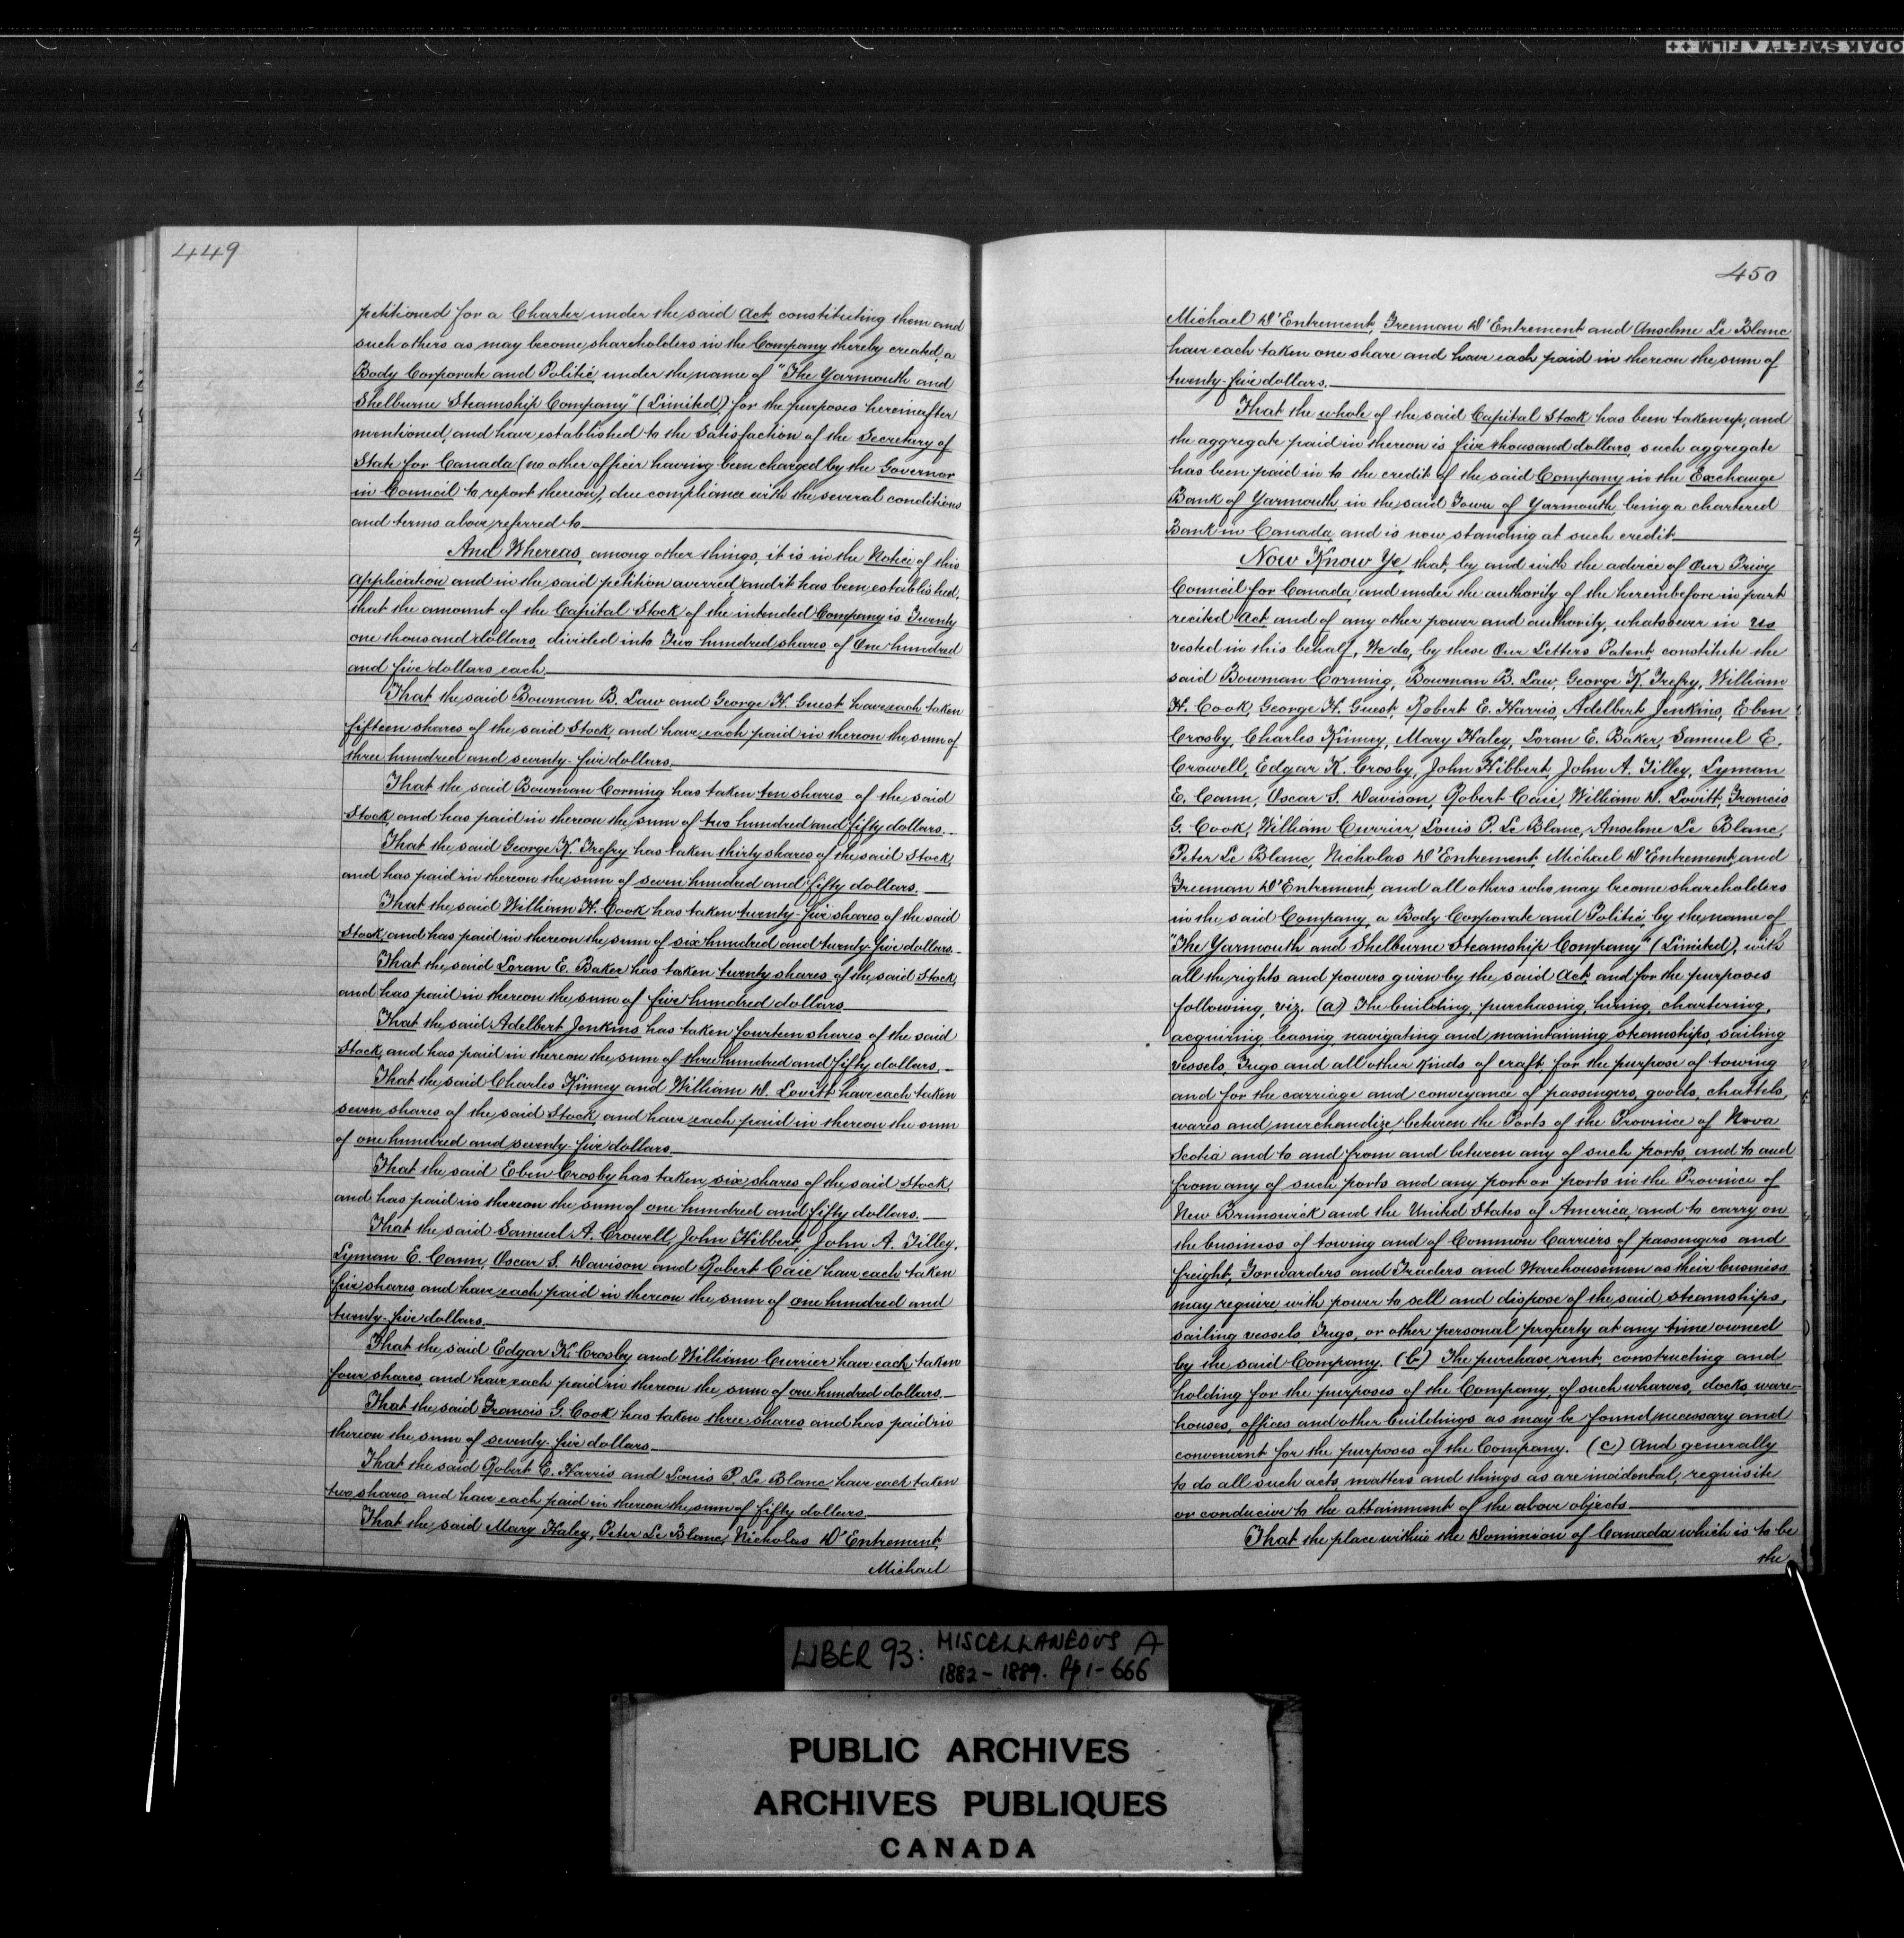 KODAK SAFETY ▲ FILM ++
449
petitioned for a Charter under the said Act constituting them and
such others as may become shareholders in the Company thereby created, a
Body Corporate and Politic under the name of "The Yarmouth and
Shelburne Steamship Company" (Limited) for the purposes hereinafter
mentioned, and have established to the Satisfaction of the Secretary of
State for Canada (no other officer having been charged by the Governor
in Council to report thereon), due compliance with the several conditions
and terms above referred to
And Whereas, among other things, it is in the Notice of this
Application and in the said petition averred, and it has been established,
that the amount of the Capital Stock of the intended Company is Twenty
one thousand dollars, divided into Two hundred shares of One hundred
and five dollars each.
That the said Bowman B. Law and George H. Guest have each taken
fifteen shares of the said Stock, and have each paid in thereon the sum of
three hundred and seventy-five dollars.
That the said Bowman Corning has taken ten shares of the said
Stock, and has paid in thereon the sum of two hundred and fifty dollars.
That the said George K. Trefry has taken thirty shares of the said Stock
and has paid in thereon the sum of seven hundred and fifty dollars.
That the said William H. Cook has taken twenty-five shares of the said
Stock, and has paid in thereon the sum of six hundred and twenty-five dollars.
That the said Loran E. Baker has taken twenty shares of the said Stock,
and has paid in thereon the sum of five hundred dollars
That the said Adelbert Jenkins has taken fourteen shares of the said
Stock, and has paid in thereon the sum of three hundred and fifty dollars.
That the said Charles Kinney and William D. Lovitt have each taken
seven shares of the said Stock, and have each paid in thereon the sum
of one hundred and seventy-five dollars.
That the said Eben Crosby has taken six shares of the said Stock,
and has paid in thereon the sum of one hundred and fifty dollars.
That the said Samuel A. Crowell, John Hibbert, John A. Tilley,
Lyman E. Cann, Oscar S. Davison and Robert Caie have each taken
five shares, and have each paid in thereon the sum of one hundred and
twenty-five dollars.
That the said Edgar K. Crosby and William Currier have each taken
four shares, and have each paid in thereon the sum of one hundred dollars.
That the said Francis G. Cook has taken three shares and has paid in
thereon the sum of seventy-five dollars
That the said Robert E. Harris and Louis P. Le Blanc have each taken
two shares, and have each paid in thereon the sum of fifty dollars
That the said Mary Haley, Peter Le Blanc, Nicholas D'Entrement,
Michael
450
Michael D'Entrement, Freeman D'Entrement and Anselme Le Blanc
have each taken one share and have each paid in thereon the sum of
twenty-five dollars.
That the whole of the said Capital Stock has been taken up, and
the aggregate paid in thereon is five thousand dollars, such aggregate
has been paid in to the credit of the said Company in the Exchange
Bank of Yarmouth, in the said Town of Yarmouth, being a chartered
Bank in Canada, and is now standing at such credit
Now Know Ye, that, by and with the advice of Our Privy
Council for Canada, and under the authority of the hereinbefore in part
recited Act, and of any other power and authority, whatsoever in Us
vested in this behalf, We do, by these Our Letters Patent, constitute the
said Bowman Corning, Bowman B. Law, George K. Trefry, William
H. Cook, George H. Guest, Robert E. Harris, Adelbert Jenkins, Eben
Crosby, Charles Kinney, Mary Haley, Loran E. Baker, Samuel E.
Crowell, Edgar K. Crosby, John Hibbert, John A. Tilley, Lyman
E. Cann, Oscar S. Davison, Robert Caie, William D. Lovitt, Francis
G. Cook, William Currier, Louis P. Le Blanc, Anselme Le Blanc,
Peter Le Blanc, Nicholas D'Entrement, Michael D'Entrement and
Freeman D'Entrement, and all others who may become shareholders
in the said Company, a Body Corporate and Politic, by the name of
"The Yarmouth and Shelburne Steamship Company" (Limited), with
all the rights and powers given by the said Act, and for the purposes
following, viz. (a) The building, purchasing, hiring, chartering,
acquiring leasing navigating and maintaining steamships, sailing
vessels, Tugs and all other kinds of craft, for the purpose of towing
and for the carriage and conveyance of passengers, goods, chattels,
wares and merchandize, between the Ports of the Province of Nova
Scotia and to and from and between any of such ports, and to and
from any of such ports and any port or ports in the Province of
New Brunswick and the United States of America, and to carry on
the business of towing and of Common Carriers of passengers and
freight, Forwarders and Traders and Warehousemen as their business
may require, with power to sell and dispose of the said steamships,
sailing vessels Tugs, or other personal property at any time owned
by the said Company. (b) The purchase, rent, constructing and
holding for the purposes of the Company, of such wharves, docks, ware-
houses, offices and other buildings as may be found necessary and
convenient for the purposes of the Company. (c) And generally
to do all such acts, matters and things as are incidental, requisite
or conducive to the attainment of the above objects
That the place within the Dominion of Canada which is to be
the
LIBER 93: MISCELLANEOUS A
1882-1889. Pp 1-666
PUBLIC ARCHIVES
ARCHIVES PUBLIQUES
CANADA